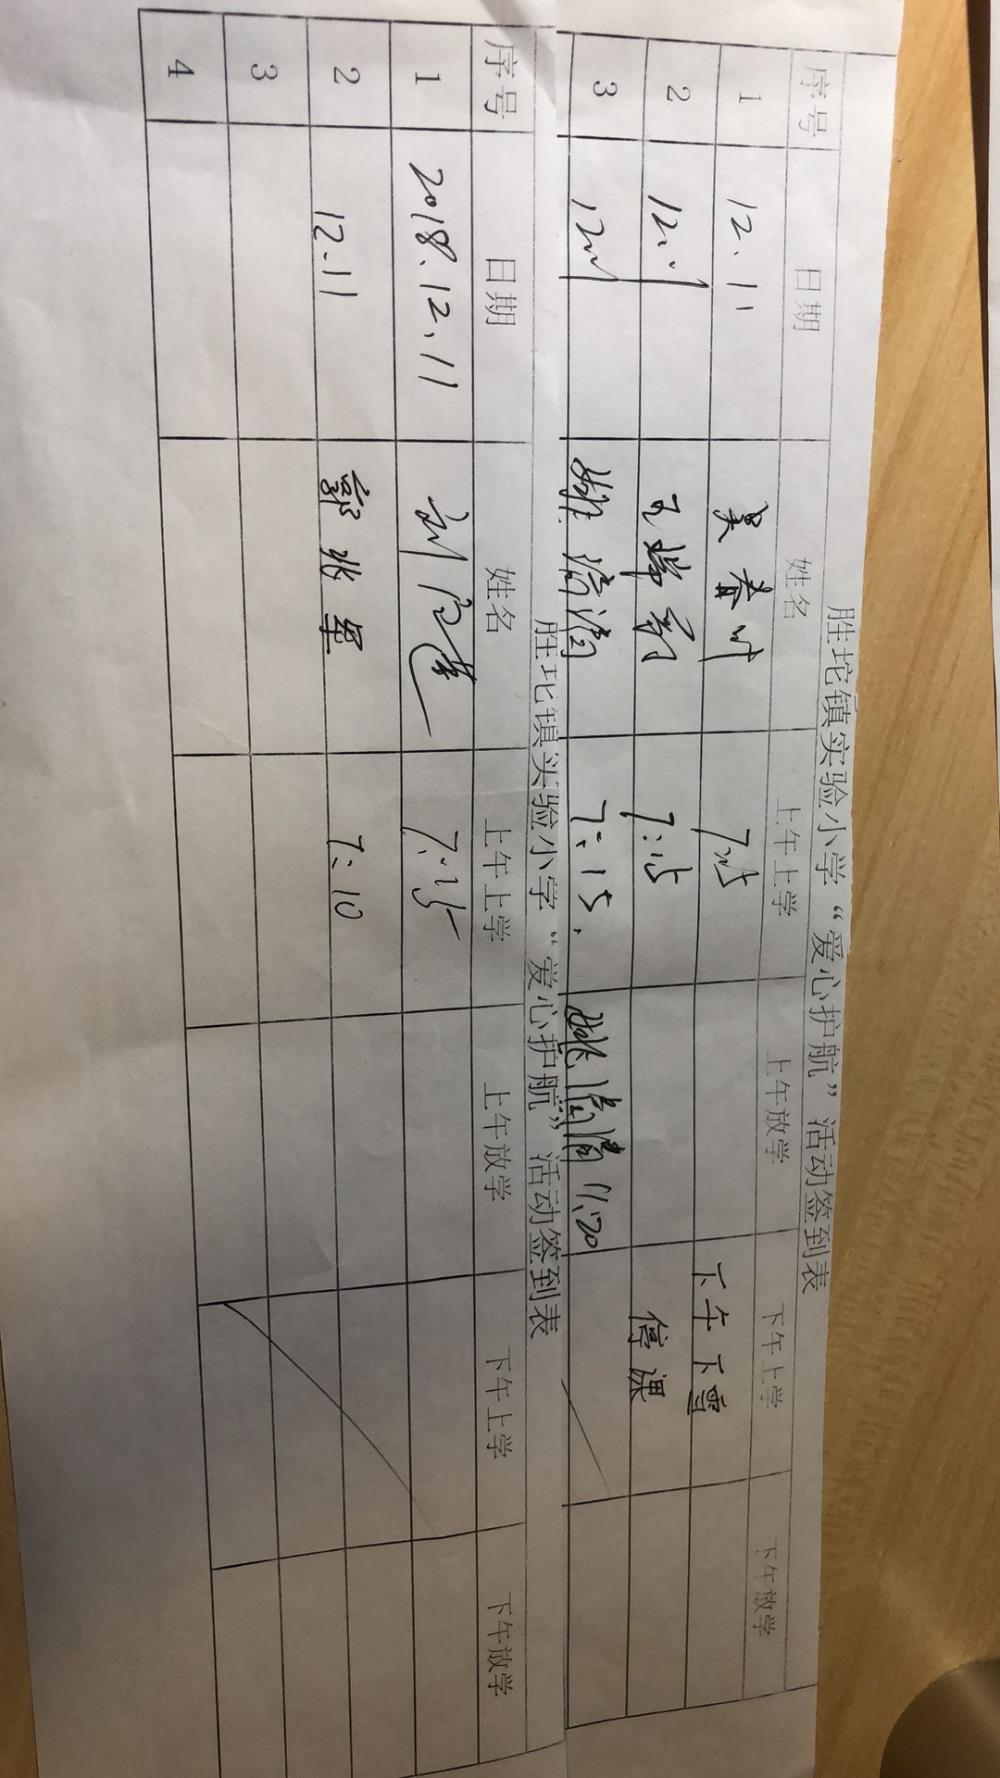 胜坨镇实验小学“爱心护航”活动签到表
序号 日期 姓名 上午上学 上午放学 下午上学 下午放学
1 12.11 吴春叶 7:15 下午下雪
2 12.11 7:15 停课
3 12.11 7:15. 11:20
胜坨镇实验小学“爱心护航”活动签到表
序号 日期 姓名 上午上学 上午放学 下午上学 下午放学
1 2018.12.11 7:15
2 12.11 郭兆军 7:10
3
4